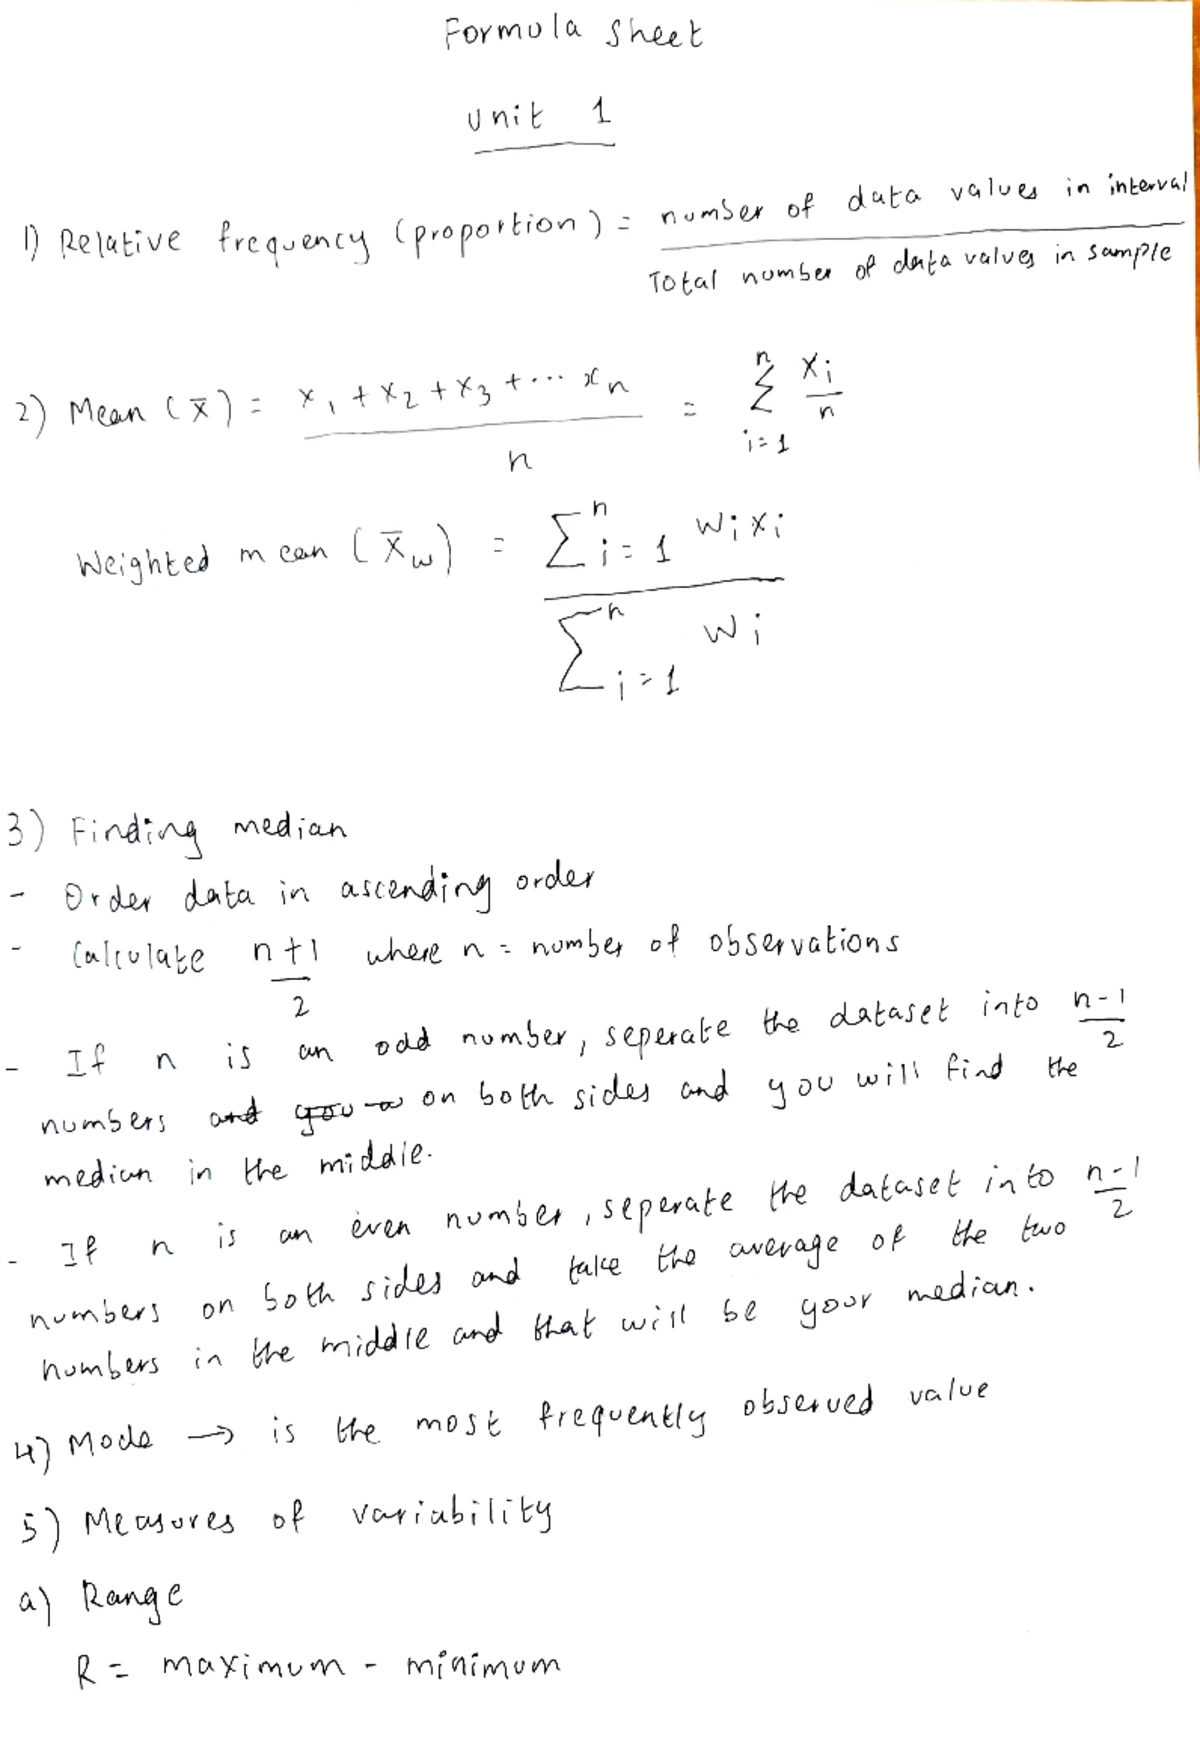 Formula sheet
Unit 1
1) Relative frequency (proportion) = number of data values in interval / Total number of data values in sample
2) Mean (x̄) = x₁ + x₂ + x₃ + ... xₙ / n = Σⁿᵢ₌₁ xᵢ / n
Weighted mean (x̄w) = Σⁿᵢ₌₁ wᵢxᵢ / Σⁿᵢ₌₁ wᵢ
3) Finding median
- Order data in ascending order
- Calculate n+1 / 2 where n = number of observations
- If n is an odd number, seperate the dataset into n-1 / 2
numbers and you on both sides and you will find the
median in the middle.
- If n is an even number, seperate the dataset into n-1 / 2
numbers on both sides and take the average of the two
numbers in the middle and that will be your median.
4) Mode → is the most frequently observed value
5) Measures of variability
a) Range
R = maximum - minimum